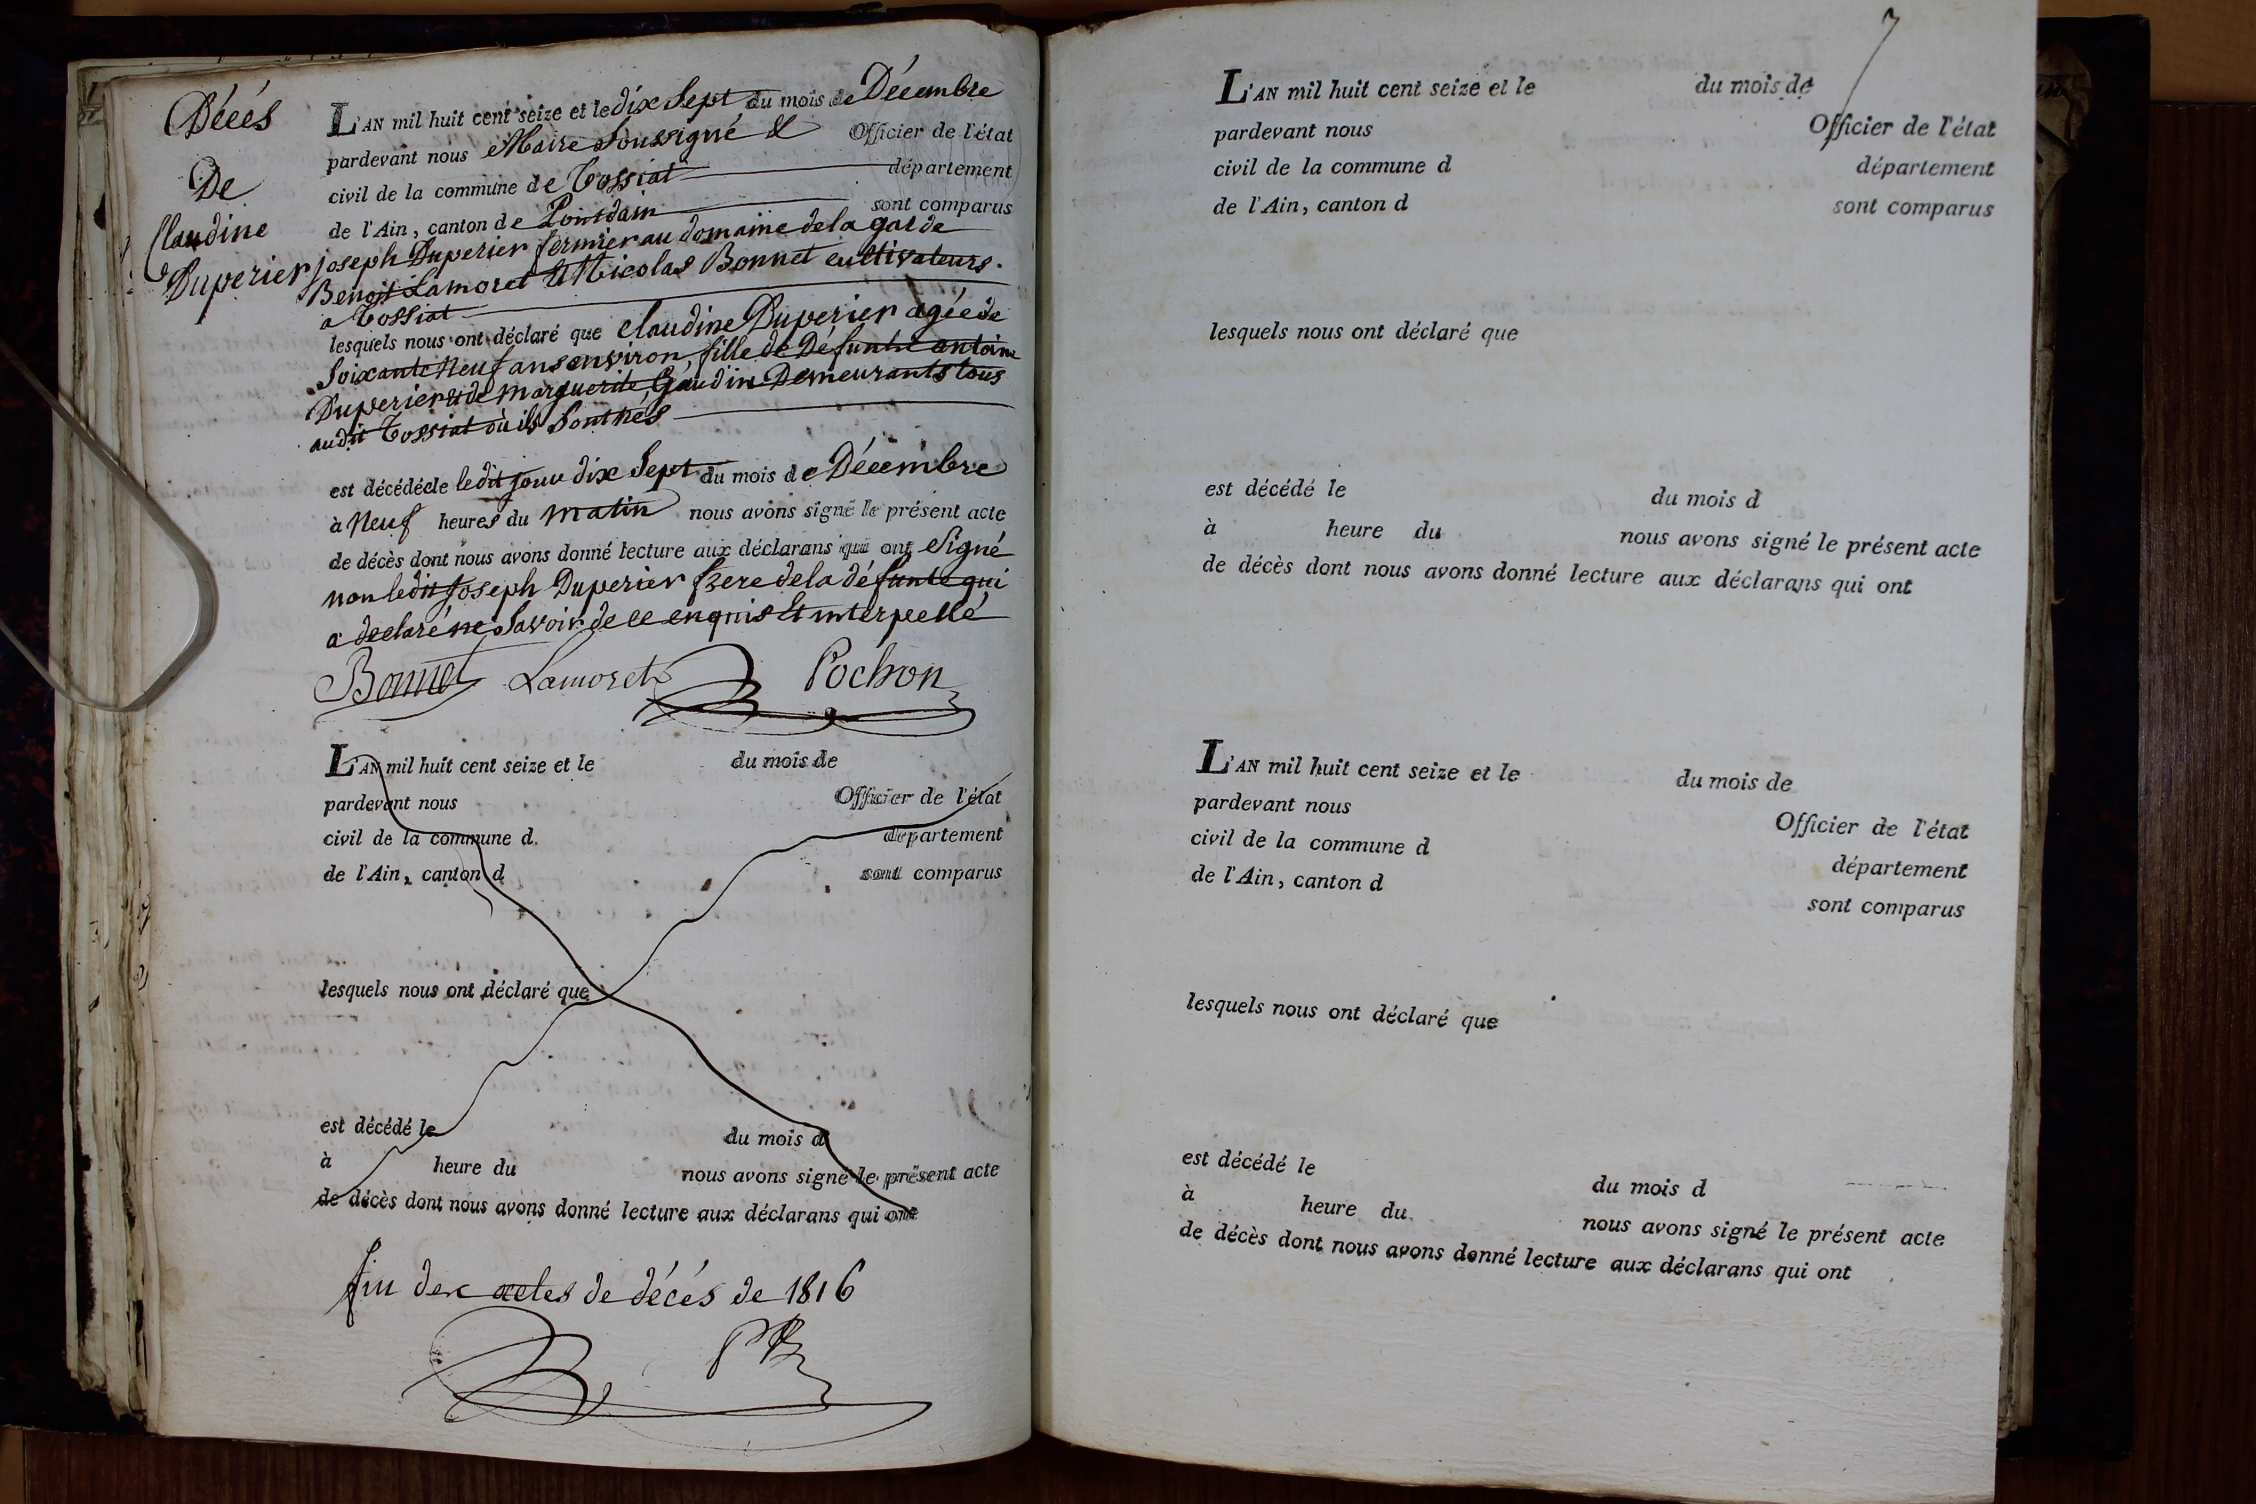 Décès
De
Claudine
Duperier
L'AN mil huit cent seize et le dix Sept du mois de Décembre
pardevant nous Maire Soussigné & Officier de l'état
civil de la commune de Tossiat département
de l'Ain, canton de Pontdain sont comparus
joseph Duperier fermier au domaine de la garde
Benoit Lamoret & Nicolas Bonnet cultivateurs
a Tossiat
lesquels nous ont déclaré que Claudine Duperier agée de
Soixante Neuf ans environ, fille de Défunts antoine
Duperier & de Marguerite Gaudin Demeurants tous
audit Tossiat où ils Sont nés
est décédée le ledit jour dix Sept du mois de Décembre
à Neuf heures du matin nous avons signé le présent acte
de décès dont nous avons donné lecture aux déclarans qui ont Signé
non ledit joseph Duperier frere de la défunte qui
a declaré ne Savoir de ce enquis et interpellé
Bonnet Lamoret Pochon
L'AN mil huit cent seize et le du mois de
pardevant nous Officier de l'état
civil de la commune d département
de l'Ain, canton d sont comparus
lesquels nous ont déclaré que
est décédé le du mois d
à heure du nous avons signé le présent acte
de décès dont nous avons donné lecture aux déclarans qui ont
fin des actes de décés de 1816
7
L'AN mil huit cent seize et le du mois de
pardevant nous Officier de l'état
civil de la commune d département
de l'Ain, canton d sont comparus
lesquels nous ont déclaré que
est décédé le du mois d
à heure du nous avons signé le présent acte
de décès dont nous avons donné lecture aux déclarans qui ont
L'AN mil huit cent seize et le du mois de
pardevant nous Officier de l'état
civil de la commune d département
de l'Ain, canton d sont comparus
lesquels nous ont déclaré que
est décédé le du mois d
à heure du nous avons signé le présent acte
de décès dont nous avons donné lecture aux déclarans qui ont